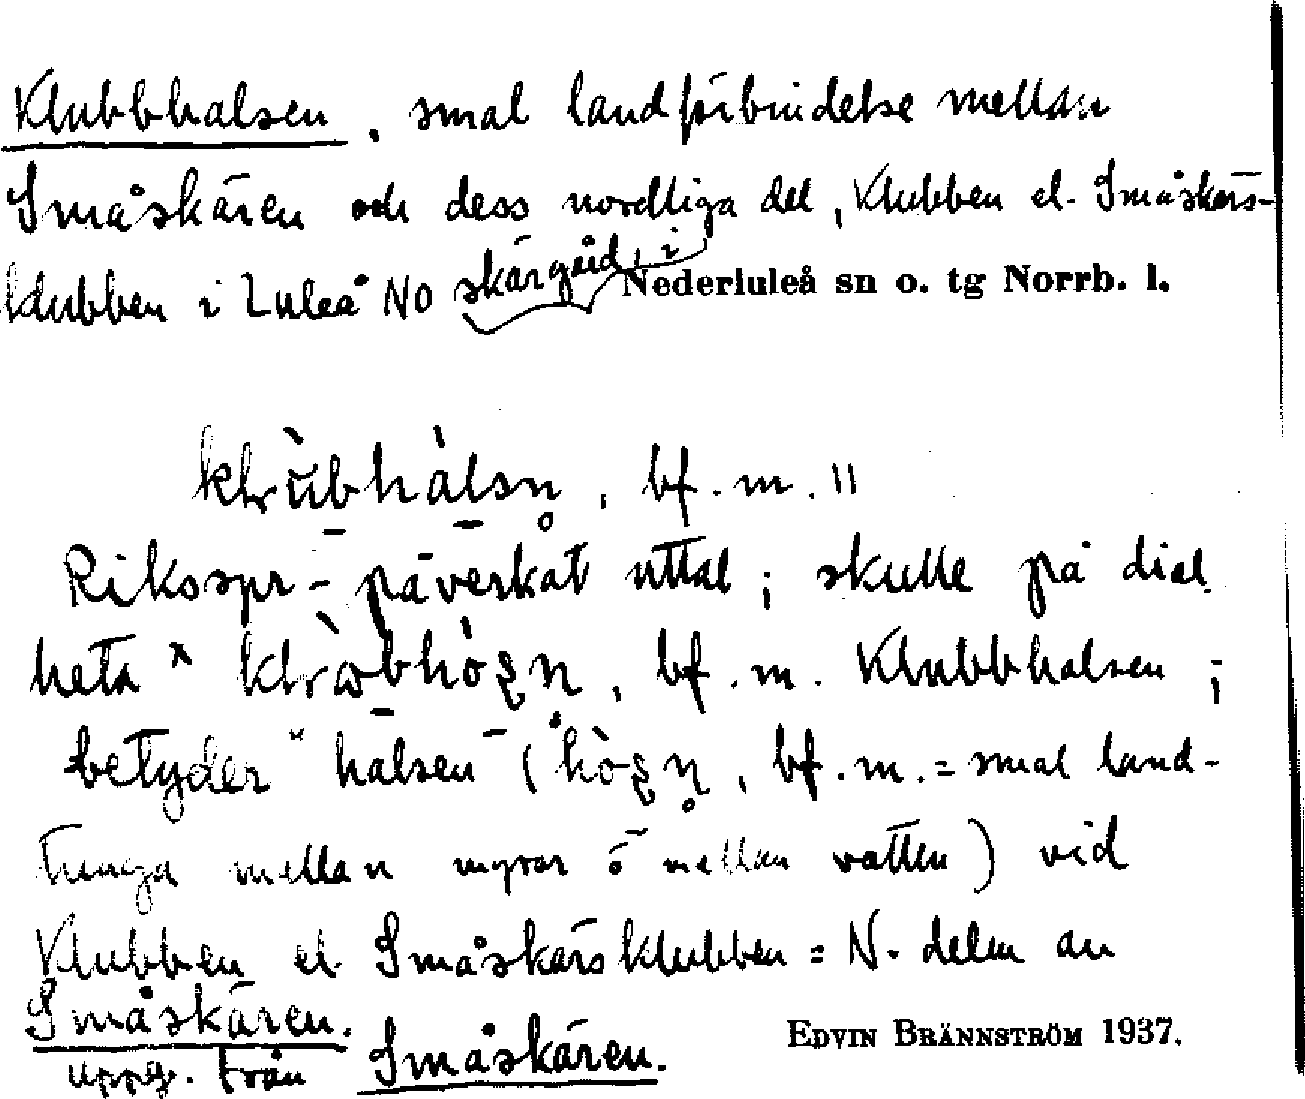 Klubbhalsen, smal landförbindelse mellan
Småskären och dess nordliga del, Klubben el. Småskärs-
klubben i Luleå NO skärgård, i Nederluleå sn o. tg Norrb. l.
bf. m. ||
Riksspr-påverkat uttal; skulle på dial.
heta bf. m. Klubbhalsen;
betyder "halsen" ( bf. m. = smal land-
tunga mellan myrar o mellan vatten) vid
Klubben el Småskärsklubben = N. delen av
Småskären.
uppg. från Småskären.
EDVIN BRÄNNSTRÖM 1937.